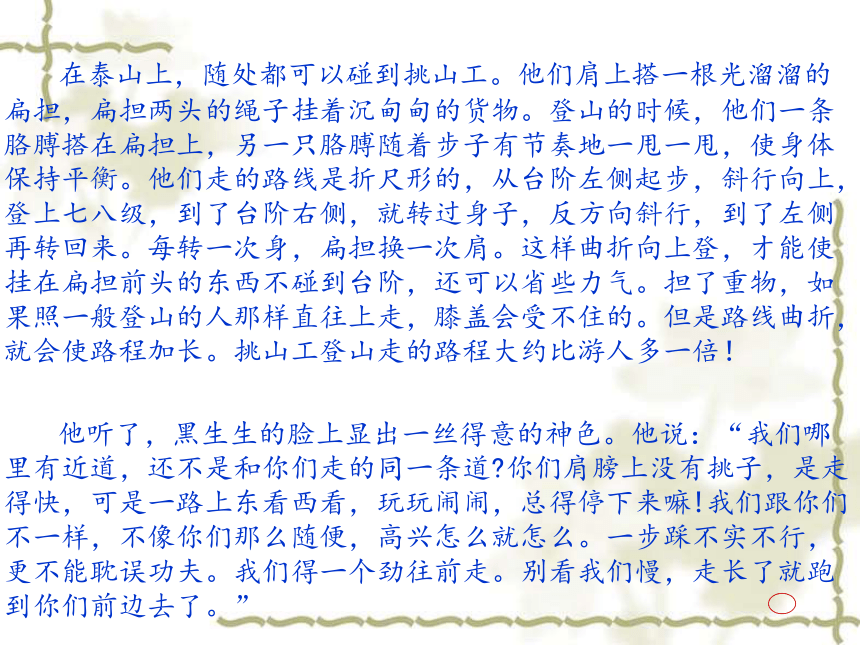 在泰山上，随处都可以碰到挑山工。他们肩上搭一根光溜溜的
扁担，扁担两头的绳子挂着沉甸甸的货物。登山的时候，他们一条
胳膊搭在扁担上，另一只胳膊随着步子有节奏地一甩一甩，使身体
保持平衡。他们走的路线是折尺形的，从台阶左侧起步，斜行向上，
登上七八级，到了台阶右侧，就转过身子，反方向斜行，到了左侧
再转回来。每转一次身，扁担换一次肩。这样曲折向上登，才能使
挂在扁担前头的东西不碰到台阶，还可以省些力气。担了重物，如
果照一般登山的人那样直往上走，膝盖会受不住的。但是路线曲折，
就会使路程加长。挑山工登山走的路程大约比游人多一倍！
他听了，黑生生的脸上显出一丝得意的神色。他说：“我们哪
里有近道，还不是和你们走的同一条道?你们肩膀上没有挑子，是走
得快，可是一路上东看西看，玩玩闹闹，总得停下来嘛!我们跟你们
不一样，不像你们那么随便，高兴怎么就怎么。一步踩不实不行，
更不能耽误功夫。我们得一个劲往前走。别看我们慢，走长了就跑
到你们前边去了。”